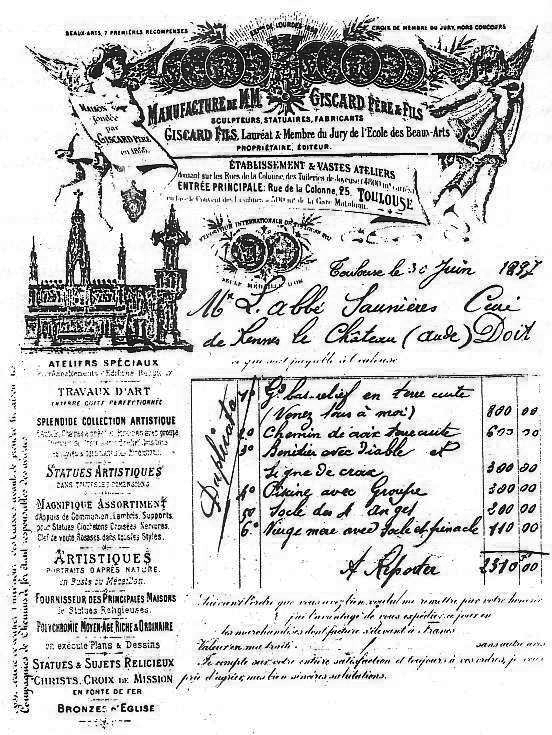 BEAUX-ARTS, 7 PREMIÈRES RÉCOMPENSES
CROIX DE MEMBRE DU JURY, HORS CONCOURS
MAISON
fondée
par
GISCARD PÈRE
en 1855
MANUFACTURE DE MM. GISCARD PÈRE & FILS
SCULPTEURS, STATUAIRES, FABRICANTS
GISCARD FILS, Lauréat & Membre du Jury de l'Ecole des Beaux-Arts
PROPRIÉTAIRE, ÉDITEUR.
ÉTABLISSEMENT & VASTES ATELIERS
donnant sur les Rues de la Colonne, des Tuileries
ENTRÉE PRINCIPALE: Rue de la Colonne, 25. TOULOUSE
de la Gare Matabiau
Toulouse le 30 Juin 1897
Mr L'abbé Saunières Curé
de Rennes le Château (Aude) Doit
ATELIERS SPÉCIAUX
TRAVAUX D'ART
TERRE CUITE PERFECTIONNÉE
SPLENDIDE COLLECTION ARTISTIQUE
STATUES ARTISTIQUES
DANS TOUTES DIMENSIONS
MAGNIFIQUE ASSORTIMENT
d'Appuis de Communion, Lambris, Supports,
pour Statues Clochetons Croisées Nervures,
Clef de voute Rosaces dans tous les Styles.
ARTISTIQUES
PORTRAITS D'APRÈS NATURE
en Buste ou Médaillon.
FOURNISSEUR DES PRINCIPALES MAISONS
de Statues Religieuses.
POLYCHROMIE MOYEN-AGE RICHE & ORDINAIRE
on exécute Plans & Dessins
STATUES & SUJETS RELIGIEUX
CHRISTS, CROIX DE MISSION
EN FONTE DE FER
BRONZES D'ÉGLISE
Duplicata
1º Gd bas-relief en terre cuite
(Venez tous à moi) 800 00
2º Chemin de croix terre cuite 600 00
3º Benitier avec diable et
Signe de croix 300 00
4º Piscine avec Groupe 300 00
5º Socle des 4 anges 200 00
6º Vierge mère avec socle et pinacle 110 00
A Reporter 2310 00
Suivant l'ordre que vous avez bien voulu me remettre par votre honorée
j'ai l'avantage de vous expédier ce jour en
les marchandises dont facture s'élevant à Francs
Valeur en ma traite sans autre avis
Je compte sur votre entière satisfaction et toujours à vos ordres, je vous
prie d'agréer, mes bien sincères salutations.